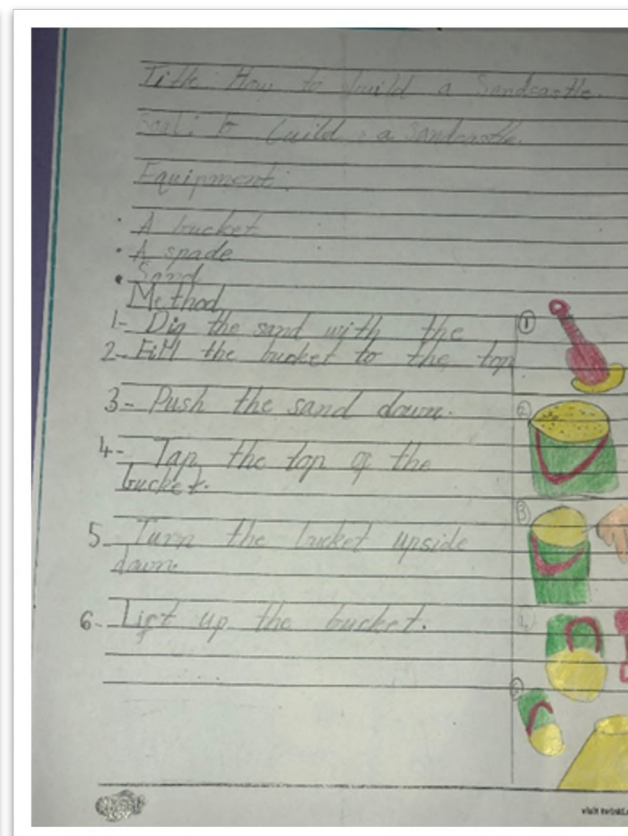 Title: How to build a Sandcastle.
Goal: to build a sandcastle.
Equipment:
• A bucket
• A spade
• Sand
Method
1- Dig the sand with the
2- Fill the bucket to the top
3- Push the sand down.
4- Tap the top of the
bucket.
5- Turn the bucket upside
down.
6- Lift up the bucket.
1
2
3
4
5
visit